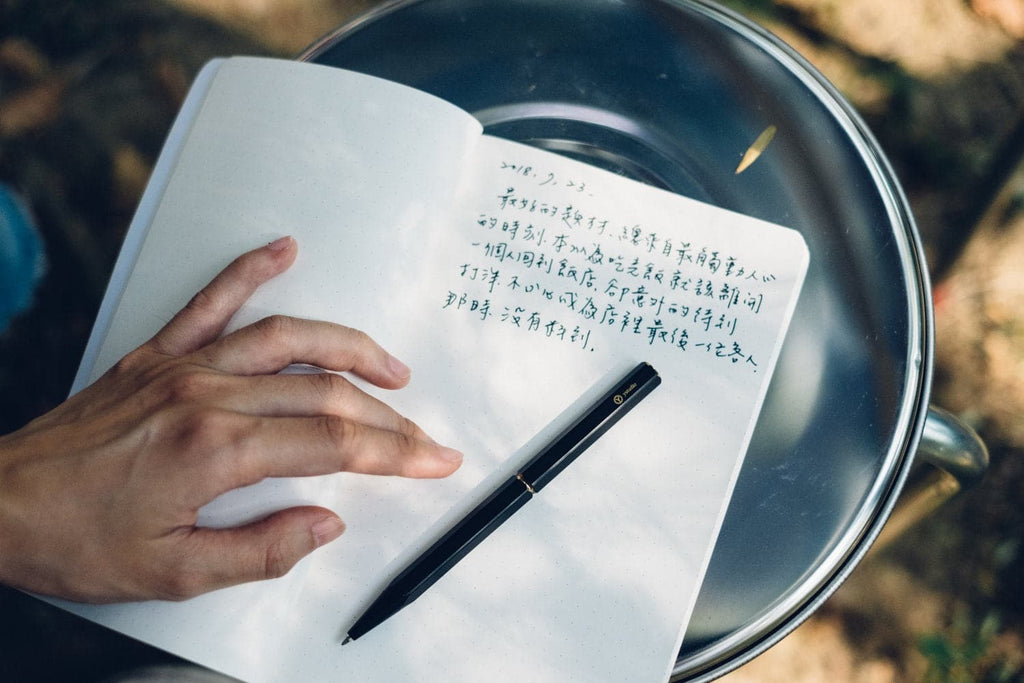 2018.9.23.
最好的題材,總來自最觸動人心
的時刻.本以為吃完飯就該離開
一個人回到飯店,卻意外的待到
打洋.不小心成為店裡最後一位客人.
那時.沒有待到.
ystudio